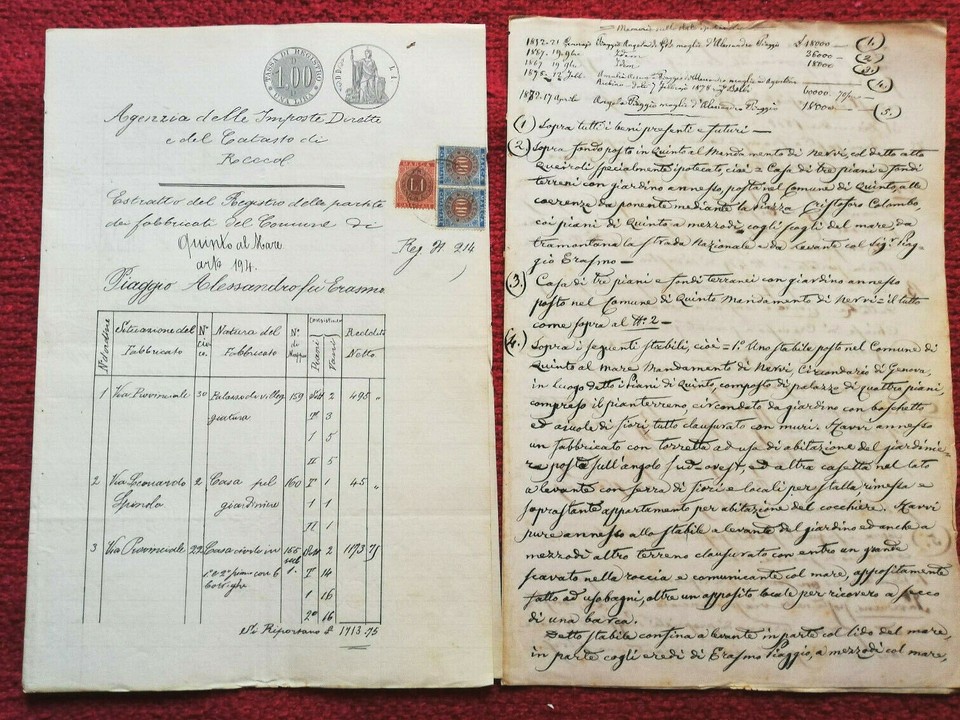 TASSA DI REGISTRO
1.00
UNA LIRA
L 1
Agenzia delle Imposte Dirette
e del Catasto di
Estratto del Registro delle partite
dei fabbricati del Comune di
Quinto al Mare
Reg. N 214
art. 194.
Piaggio Alessandro fu Erasmo
N. d'ordine
Situazione del Fabbricato
N. civico
Natura del Fabbricato
N. di Mappa
Consistenza
Piani
Vani
Reddito Netto
1 Via Provinciale 30 Palazzo di villeggiatura 159 2 495 "
T 3
1 5
II 5
2 Via Leonardo Spinola 2 Casa pel giardiniere 160 T 1 45 "
1 1
II 1
3 Via Provinciale 22 Casa civile in 155 2 1173.75
1° e 2° piano con 6 botteghe T 14
1 16
2° 16
Si Riportano L. 1713.75
Memoria sulle
1852. 21 Gennajo Piaggio Angela di moglie d'Alessandro Piaggio £ 18000 — 1.
1867. 19 9bre Idem 36000 — 2.
1867 19 9bre Idem 18000 3.
1878 7 febbrajo 1878 60000 4.
17 Aprile Angela Piaggio moglie d'Alessandro Piaggio 18000 5.
1 Sopra tutti i beni presenti e futuri —
2 Sopra fondo posto in Quinto al Mandamento di Nervi, col detto atto
Queiroli specialmente ipotecato, cioè = Casa di tre piani e fondi
terreni con giardino annesso, posta nel Comune di Quinto, alle
coerenze da ponente mediante la piazza Cristoforo Colombo,
coi piani di Quinto a mezzodì, cogli scogli del mare, da
tramontana la strada Nazionale e da levante col Sig. Piag-
gio Erasmo —
3. Casa di tre piani e fondi terranei con giardino annesso
posto nel Comune di Quinto Mandamento di Nervi = il tutto
come sopra al N° 2 —
4. Sopra i seguenti stabili, cioè = 1° Uno stabile posto nel Comune di
Quinto al mare Mandamento di Nervi, Circondario di Genova,
in luogo detto i Piani di Quinto, composto di palazzo di quattro piani,
compreso il pianterreno, circondato da giardino con boschetto
ed aiuole di fiori, tutto clausurato con muri. Havvi annesso
un fabbricato con torretta ad uso di abitazione del giardinie-
re posta sull'angolo sud-ovest, ed altra casetta nel lato
a levante con serra di fiori e locali per stalla, rimessa e
soprastante appartamento per abitazione del cocchiere. Havvi
pure annesso allo stabile a levante del giardino ed anche a
mezzodì altro terreno clausurato con entro un grande
scavato nella roccia e comunicante col mare, appositamente
fatto ad uso bagni, oltre un apposito locale per ricovero a secco
di una barca.
Detto stabile confina a levante in parte col lido del mare,
in parte cogli eredi di Erasmo Piaggio, a mezzodì col mare,